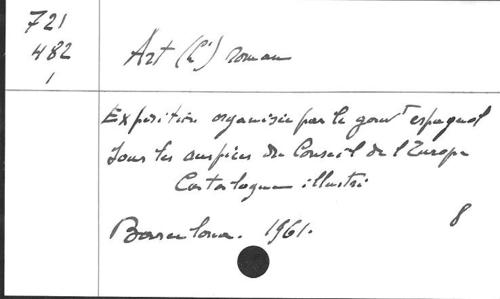 721
482
1
Art (L') roman
Exposition organisée par le gouvt espagnol
sous les auspices du Conseil de l'Europe
Catalogue illustré
Barcelona. 1961.
8